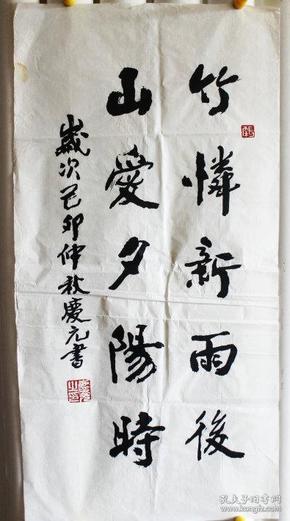 竹憐新雨後
山愛夕陽時
歲次己卯仲秋慶元書
孔夫子旧书网